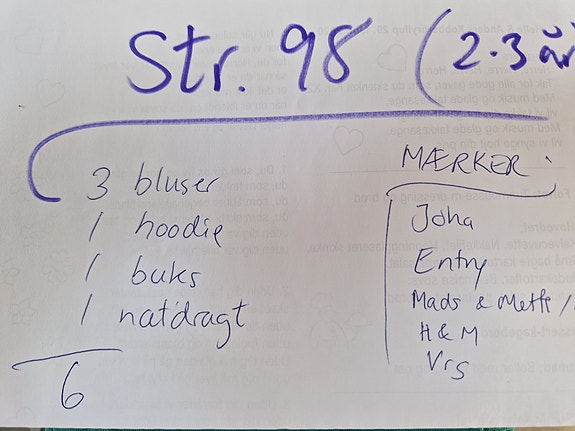 Str. 98 (2-3 år
3 bluser
1 hoodie
1 buks
1 natdragt
6
MÆRKER:
Joha
Entry
Mads & Mette /
H & M
Vrs